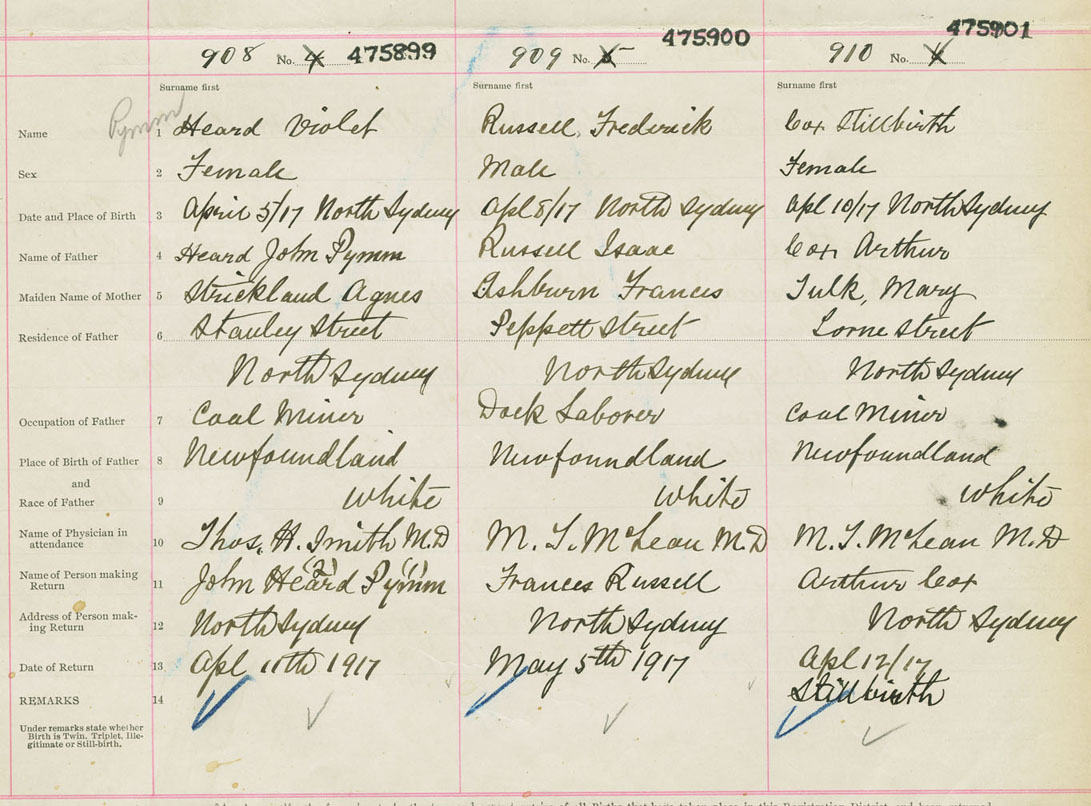 908 No. 4 475899
909 No. 5 475900
910 No. 6 475901
Surname first
Surname first
Surname first
Pymm
Name 1 Heard Violet Russell, Frederick Cox Stillbirth
Sex 2 Female Male Female
Date and Place of Birth 3 April 5/17 North Sydney Apl 8/17 North Sydney Apl 10/17 North Sydney
Name of Father 4 Heard John Pymm Russell Isaac Cox Arthur
Maiden Name of Mother 5 Strickland Agnes Ashburn Frances Tulk, Mary
Residence of Father 6 Stanley Street Peppett Street Lorne Street
North Sydney North Sydney North Sydney
Occupation of Father 7 Coal Miner Dock Laborer Coal Miner
Place of Birth of Father 8 Newfoundland Newfoundland Newfoundland
and
Race of Father 9 White White White
Name of Physician in
attendance 10 Thos. H. Smith M.D M. T. McLean M.D M. T. McLean M.D
Name of Person making
Return 11 John Heard (2) Pymm (1) Frances Russell Arthur Cox
Address of Person mak-
ing Return 12 North Sydney North Sydney North Sydney
Date of Return 13 Apl 11th 1917 May 5th 1917 Apl 12/17
REMARKS 14 Stillbirth
Under remarks state whether
Birth is Twin, Triplet, Ille-
gitimate or Still-birth.
of all Births that have taken place in this Registration District and been returned